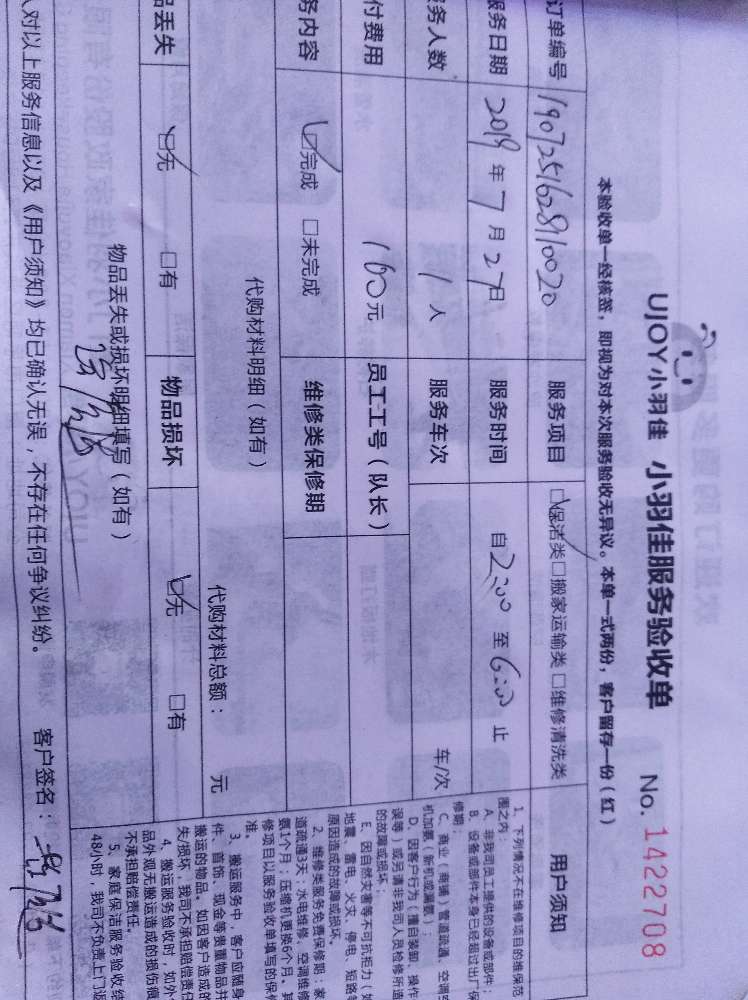 UJOY小羽佳 小羽佳服务验收单 No. 1422708
本验收单一经核签，即视为对本次服务验收无异议。本单一式两份，客户留存一份（红）
订单编号 190725162810020 服务项目 ☑保洁类□搬家运输类□维修清洗类
务日期 2019年7月27日 服务时间 自2:00至6:00止
务人数 1人 服务车次 车/次
付费用 160元 员工工号（队长）
务内容 ☑完成 □未完成 维修类保修期
代购材料明细（如有） 代购材料总额： 元
品丢失 ☑无 □有 物品损坏 ☑无 □有
物品丢失或损坏明细填写（如有）
人对以上服务信息以及《用户须知》均已确认无误，不存在任何争议纠纷。 客户签名：
用户须知
1、下列情况不在维修项目的维保范
围之内：
A、非我司员工提供的设备或部件；
B、设备或部件本身已经超过出厂保
修期；
C、商业（商铺）管道疏通、空调空
机加氨（新机或漏氨）；
D、因客户行为（擅自装卸、操作
误等）或另请非我司人员检修所造
的故障或损坏；
E、因自然灾害等不可抗拒力（如
地震、雷电、火灾、停电、短路等
原因造成的故障或损坏。
2、维修类服务免费保修期：家
道疏通3天；水电维修、空调维修
氨1个月；压缩机更换6个月。其
修项目以服务验收单填写的保修
准。
3、搬运服务中，客户应随身
件、首饰、现金等贵重物品并
搬运的物品。如因客户造成的
失/损坏，我司不承担赔偿责任
4、搬运服务验收时，如外包
品外观无搬运造成的损伤痕
不承担赔偿责任。
5、家庭保洁服务验收结
48小时，我司不负责上门返